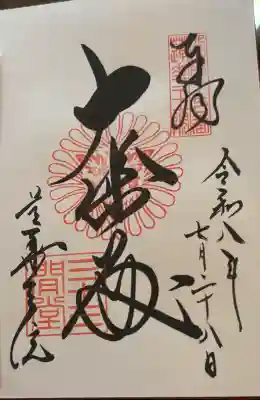 奉拝
令和八年
七月二十八日
大悲殿
三十三間堂
蓮華王院